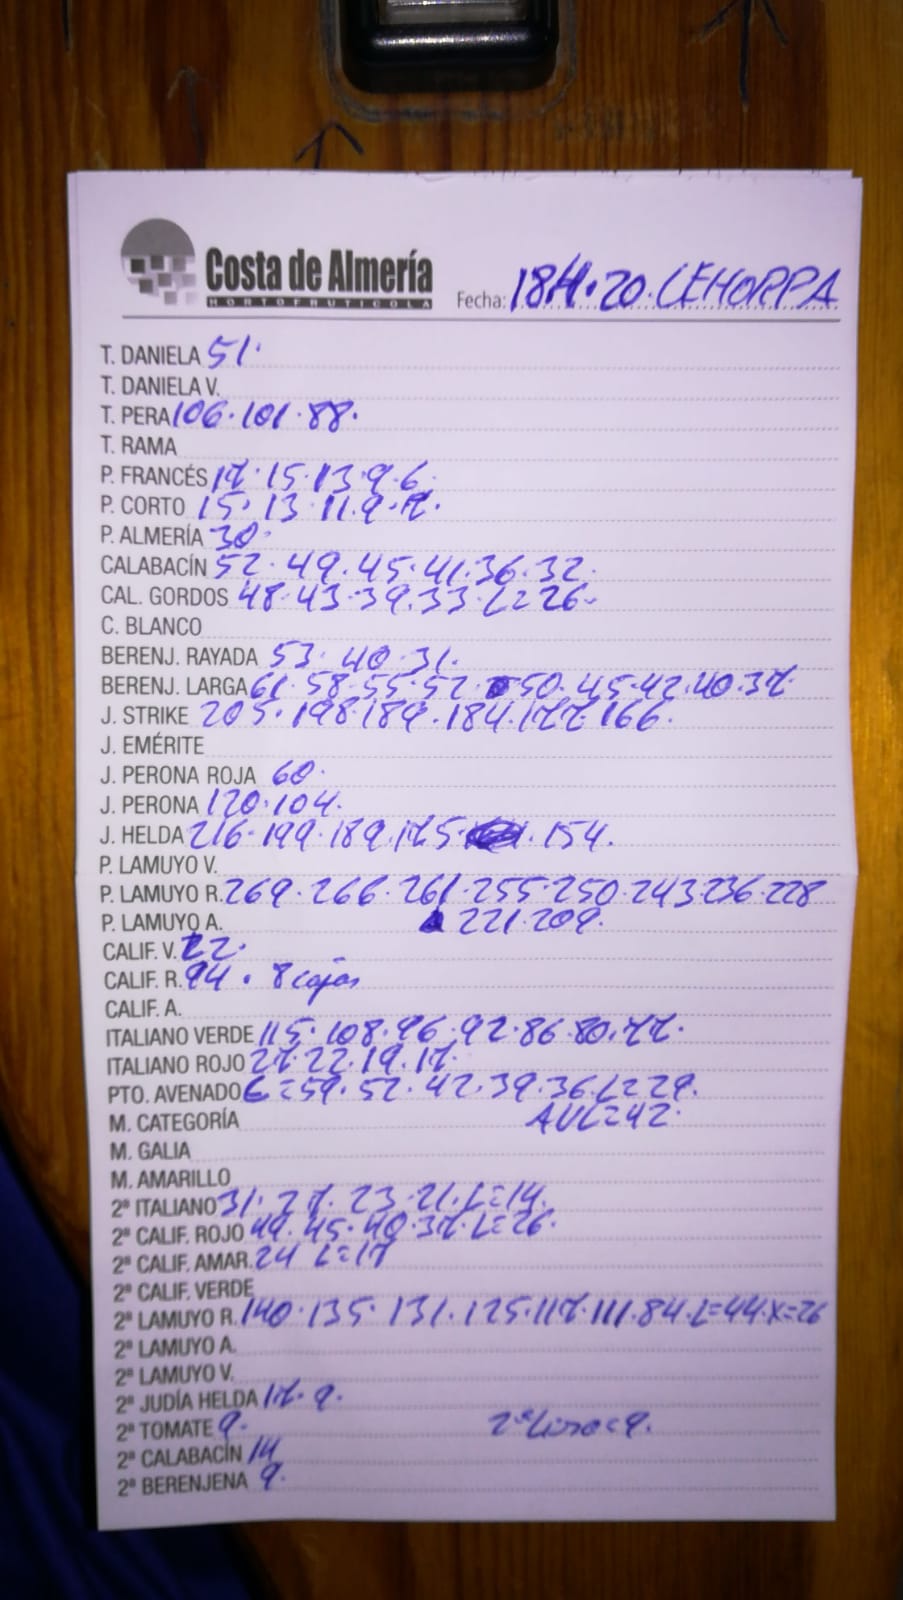 Costa de Almería
HORTOFRUTICOLA
Fecha: 18·11·20· CEHORPA
T. DANIELA 51·
T. DANIELA V.
T. PERA 106·101·88·
T. RAMA
P. FRANCÉS 17·15·13·9·6·
P. CORTO 15·13·11·9·7·
P. ALMERÍA 30·
CALABACÍN 52·49·45·41·36·32·
CAL. GORDOS 48·43·39·33·L=26·
C. BLANCO
BERENJ. RAYADA 53·40·31·
BERENJ. LARGA 61·58·55·52·50·45·42·40·37
J. STRIKE 205·198·189·184·177·166·
J. EMÉRITE
J. PERONA ROJA 60·
J. PERONA 120·104·
J. HELDA 216·199·189·175·154·
P. LAMUYO V.
P. LAMUYO R. 269·266·261·255·250·243·236·228
P. LAMUYO A. 221·209·
CALIF. V. 72·
CALIF. R. 94·8 cajas
CALIF. A.
ITALIANO VERDE 115·108·96·92·86·80·77·
ITALIANO ROJO 27·22·19·17·
PTO. AVENADO G=59·52·42·39·36·L=29·
M. CATEGORÍA AVL=42·
M. GALIA
M. AMARILLO
2ª ITALIANO 31·27·23·21·L=14·
2ª CALIF. ROJO 49·45·40·37·L=26·
2ª CALIF. AMAR. 24 L=17
2ª CALIF. VERDE
2ª LAMUYO R. 140·135·131·125·117·111·84·L=44·X=26
2ª LAMUYO A.
2ª LAMUYO V.
2ª JUDÍA HELDA 17·9·
2ª TOMATE 9· =9·
2ª CALABACÍN 14
2ª BERENJENA 9·